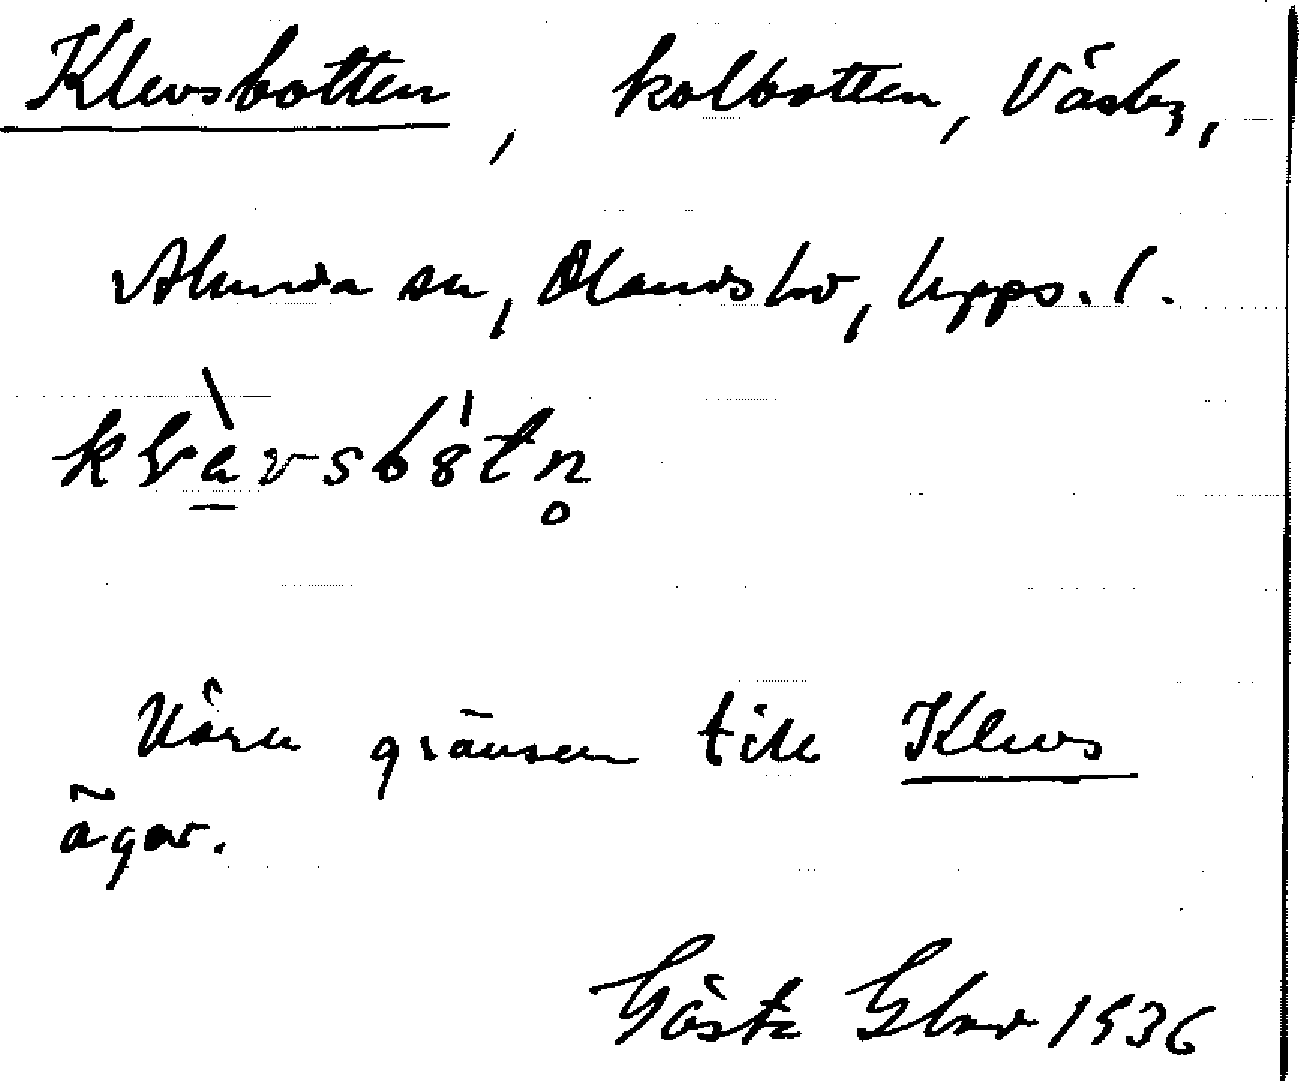 Klevsbotten, kolbotten, Väsby,
Alunda sn, Olands hd, Upps. l.
Våra gränsen till Klevs
ägor.
Gösta Elovs 1936